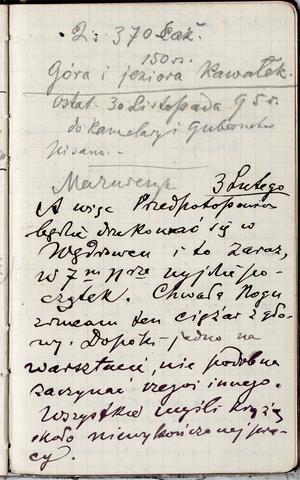 2: 370 Łaź.
150 rs.
Góra i jeziora Kawałek.
Ostat. 30 Listopada 95 r.
do kancelaryi Gubernat.
pisano. —
Mazurczyk
3 Lutego
A więc Przedpotopowa
będzie drukować się w
Wędrowcu i to zaraz,
w 7 m nrze wyjdzie po-
czątek. Chwała Bogu
zrzucam ten ciężar z gło-
wy. Dopóki jedno na
warsztacie, nie podobna
zaczynać czegoś innego.
Wszystkie myśli krążą
około niewykończonej pra-
cy.